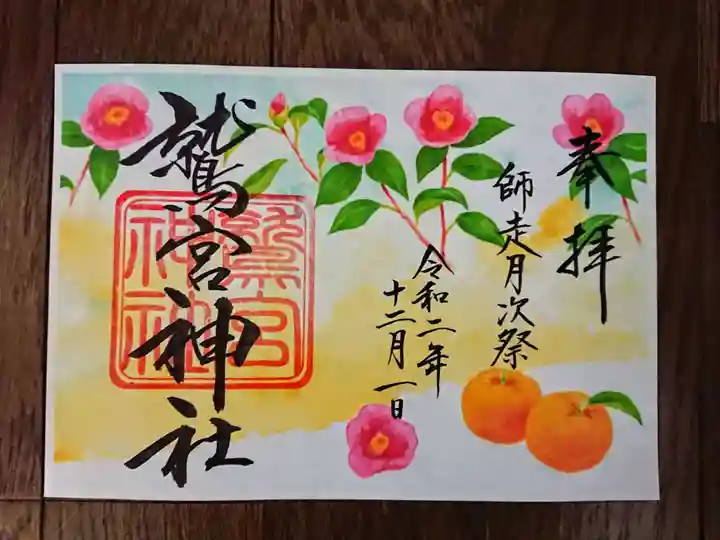 奉拝
師走月次祭
令和二年
十二月一日
鷲宮神社
鷲宮
神社